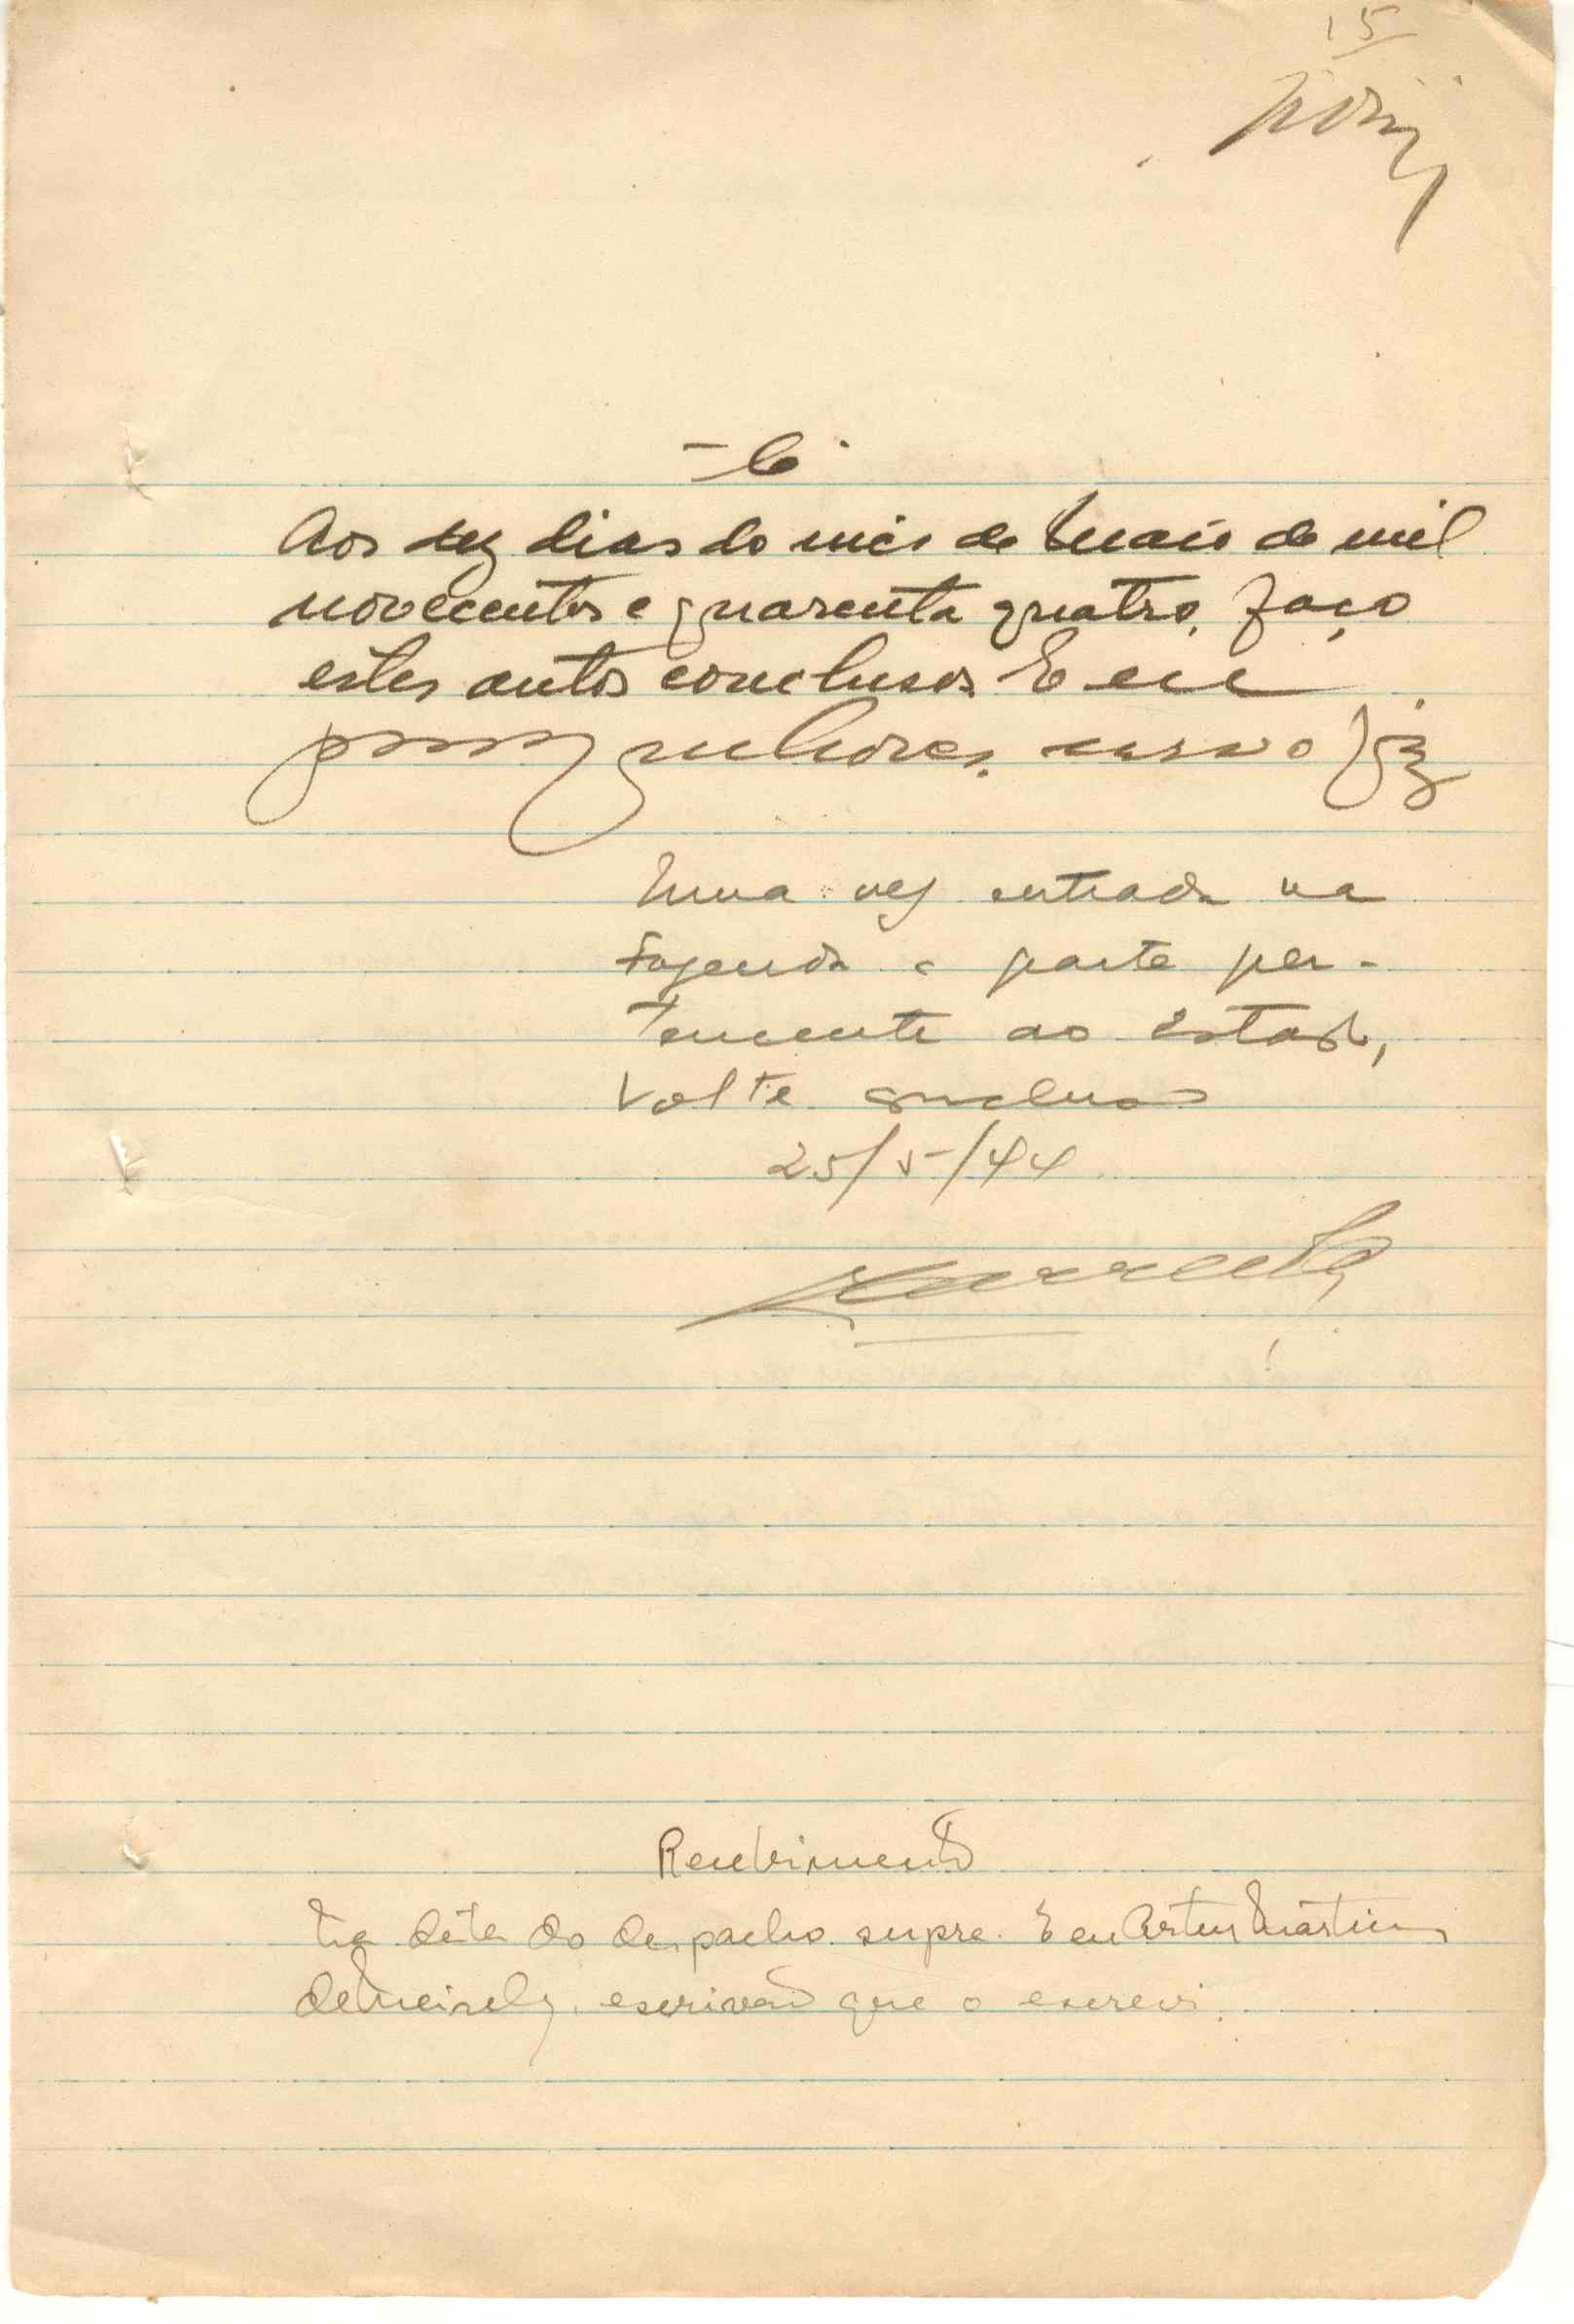 15
Aos dez dias do mês de Maio de mil
novecentos e quarenta quatro, faço
estes autos conclusos. E eu
o fiz
Uma vez entrada na
fazenda a parte per-
tencente ao Estado,
volte conclusos
25/5/44
Recebimento
Na data do despacho supra. E eu Artur Martins
de Meirelles, escrivão que o escrevi.